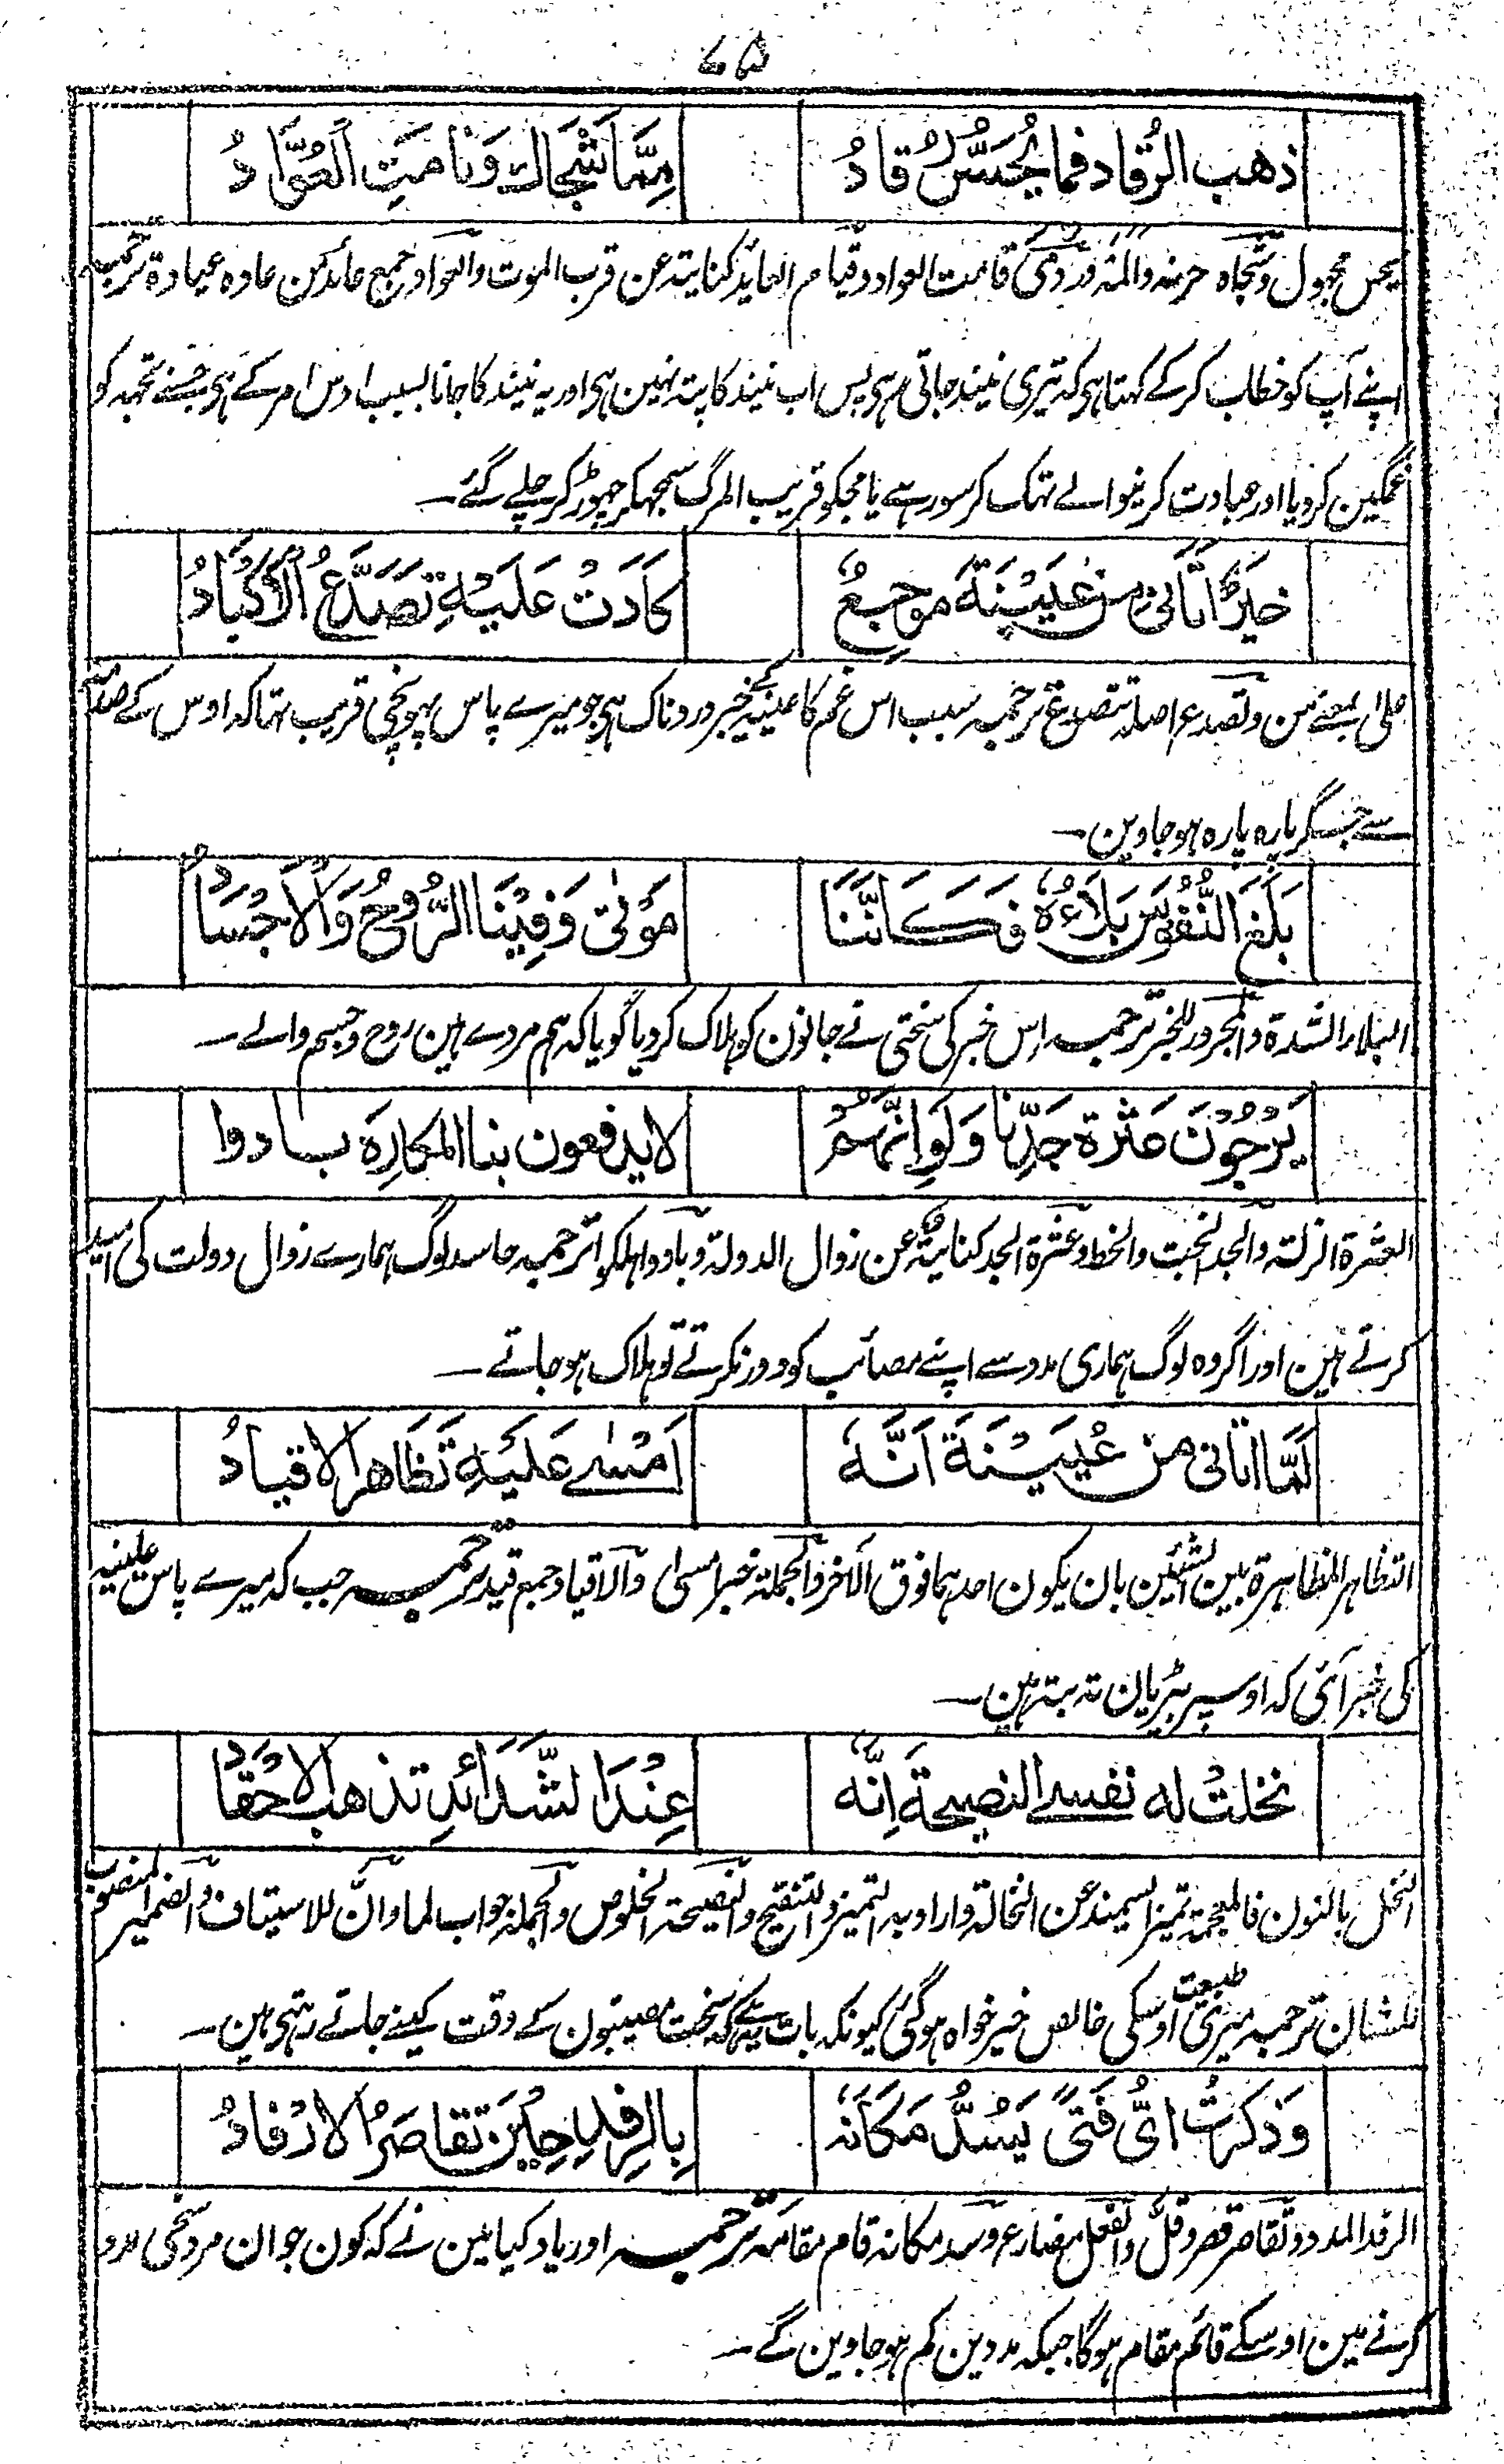 ۷۵
ذهب الرُقاد فما يُحَسُّ رُقادُ مِمَّا شَجَاكَ وَنَامَتِ العُوَّادُ
یحس مجہول وشجاہ حزنہ والمشہور ویُروی قامت العواد وقیام العاید کنایتہ عن قرب الموت والعواد جمع عائد من عادہ عیادۃ ترجمہ
اپنے آپ کو خطاب کرکے کہتا ہی کہ تیری نیند جاتی رہی پس اب نیند کا پتہ نہین ہی اور یہ نیند کا جانا بسبب اوس امر کے ہی جسنے تجہہ کو
غمگین کردیا اور عیادت کرینوالے تھک کر سو رہے یا مجکو قریب المرگ سمجھکر چھوڑ کر چلے گئے۔
خَبَرٌ اَتَانِی مِن عُیَیْنَةَ مُوجِعٌ كَادَتْ عَلَيْهِ تَصَدَّعُ الْاَكْبَادُ
علی بمعنے من وتصدع اصلہ تتصدع ترجمہ بسبب اس غم کا عیینہ کے خبر دردناک ہی جو میرے پاس پہونچی قریب تھا کہ اوس کے صدمہ
سے جگر پارہ پارہ ہوجاوین۔
بَلَغَ النُّفُوْسَ بَلَاءُهٗ فَكَاَنَّنَا مَوْتٰی وَفِيْنَا الرُّوْحُ وَالْاَجْسَادُ
البلاء الشدۃ والمجرور للخبر ترجمہ اس خبر کی سختی نے جانون کو ہلاک کردیا گویا کہ ہم مردے ہین روح وجسم والے۔
يَرْجُوْنَ عَثْرَةَ جَدِّنَا وَلَوْ اَنَّهُمْ لا يدفعون بنا المكارِهَ بادوا
العثرۃ الزلتہ والجد البخت والحظ وعثرۃ الجد کنایتہ عن زوال الدولۃ وبادوا ہلکوا ترجمہ حاسد لوگ ہمارے زوال دولت کی امید
کرتے ہین اور اگر وہ لوگ ہماری مدد سے اپنے مصائب کو دور نکرتے تو ہلاک ہوجاتے۔
لَمَّا اتانی من عُيَيْنَةَ اَنَّهٗ اَمْسٰى عَلَيْهِ تَظَاهَرُ الاقيادُ
التظاہر المظاہرۃ بین الشیئین بان یکون احدہما فوق الآخر والجملۃ خبر امسیٰ والاقیاد جمع قید ترجمہ جب کہ میرے پاس عیینہ
کی خبر آئی کہ اوسپر بیڑیان تہ بتہ ہین۔
نخلتْ له نفسي النصيحةَ اِنَّهٗ عِنْدَ الشَّدَائِدِ تذهب الاحْقَادُ
النخل بالنون فالمعجمۃ تمیز السمید عن النخالۃ واراد بہ التمیز والتنقیح والنصیحۃ الخلوص والجملۃ جواب لما وانّ للاستیناف والضمیر المنصوب
للشان ترجمہ میری طبیعت اوسکی خالص خیر خواہ ہوگئی کیونکہ بات یہ ہے کہ سخت مصیبتون کے وقت کینے جاتے رہتی ہین۔
وَذكرتُ ایُّ فَتًى يَسُدُّ مَكَانَهٗ بِالرِفْدِ حِيْنَ تقاصَرُ الارْفادُ
الرفد المدد وتقاصر قصر وقلّ والفعل مضارع وسد مکانہ قام مقامہ ترجمہ اور یاد کیا مین نے کہ کون جوان مرد سخی مدد
کرنے مین اوسکے قائم مقام ہوگا جبکہ مددین کم ہوجاوین گے۔